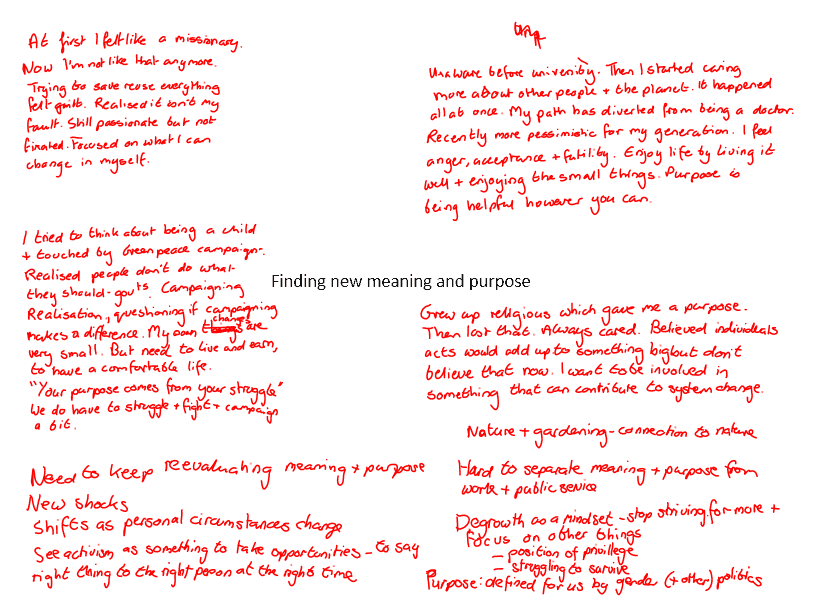 At first I felt like a missionary.
Now I'm not like that anymore.
Trying to save reuse everything
felt guilt. Realised it isn't my
fault. Still passionate but not
Focused on what I can
change in myself.
Unaware before university. Then I started caring
more about other people + the planet. It happened
all at once. My path has diverted from being a doctor.
Recently more pessimistic for my generation. I feel
anger, acceptance + futility. Enjoy life by living it
well + enjoying the small things. Purpose is
being helpful however you can.
I tried to think about being a child
+ touched by Greenpeace campaign.
Realised people don't do what
they should - gov'ts. Campaigning
Realisation, questioning if campaigning
makes a difference. My own changes are
very small. But need to live and earn,
to have a comfortable life.
"Your purpose comes from your struggle"
We do have to struggle + fight + campaign
a bit.
Finding new meaning and purpose
Grew up religious which gave me a purpose.
Then lost that. Always cared. Believed individuals
acts would add up to something big but don't
believe that now. I want to be involved in
something that can contribute to system change.
Nature + gardening - connection to nature
Need to keep reevaluating meaning + purpose
New shocks
Shifts as personal circumstances change
See activism as something to take opportunities - to say
right thing to the right person at the right time
Hard to separate meaning + purpose from
work + public service
Degrowth as a mindset - stop striving for more +
focus on other things
- position of privillege
- struggling to survive
Purpose: defined for us by gender (+ other) politics